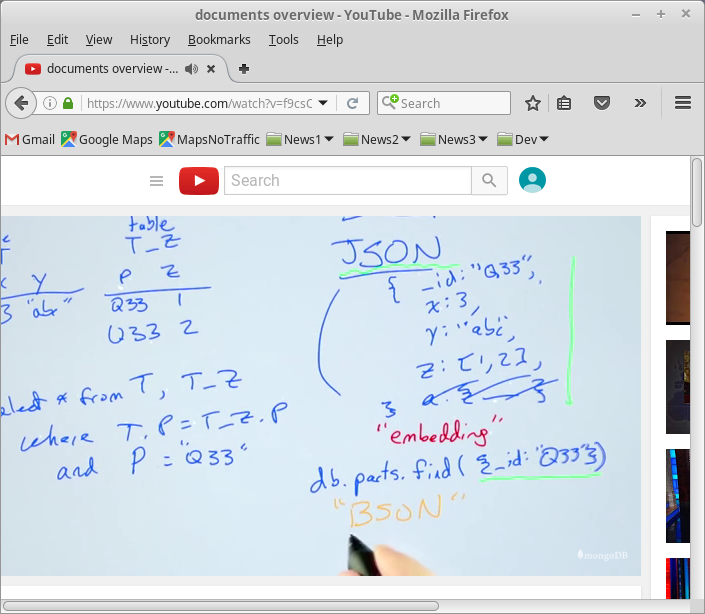 documents overview - YouTube - Mozilla Firefox
File Edit View History Bookmarks Tools Help
documents overview -...
https://www.youtube.com/watch?v=f9csC
Search
Gmail Google Maps MapsNoTraffic News1 News2 News3 Dev
Search
table
T_Z
y P Z
3 "abx" Q33 1
Q33 2
from T, T_Z
where T.P = T_Z.P
and P = "Q33"
JSON
{ _id: "Q33",
x: 3,
y: "abc",
z: [1,2],
a: { }
}
"embedding"
db.parts.find({_id: "Q33"})
"BSON"
mongoDB